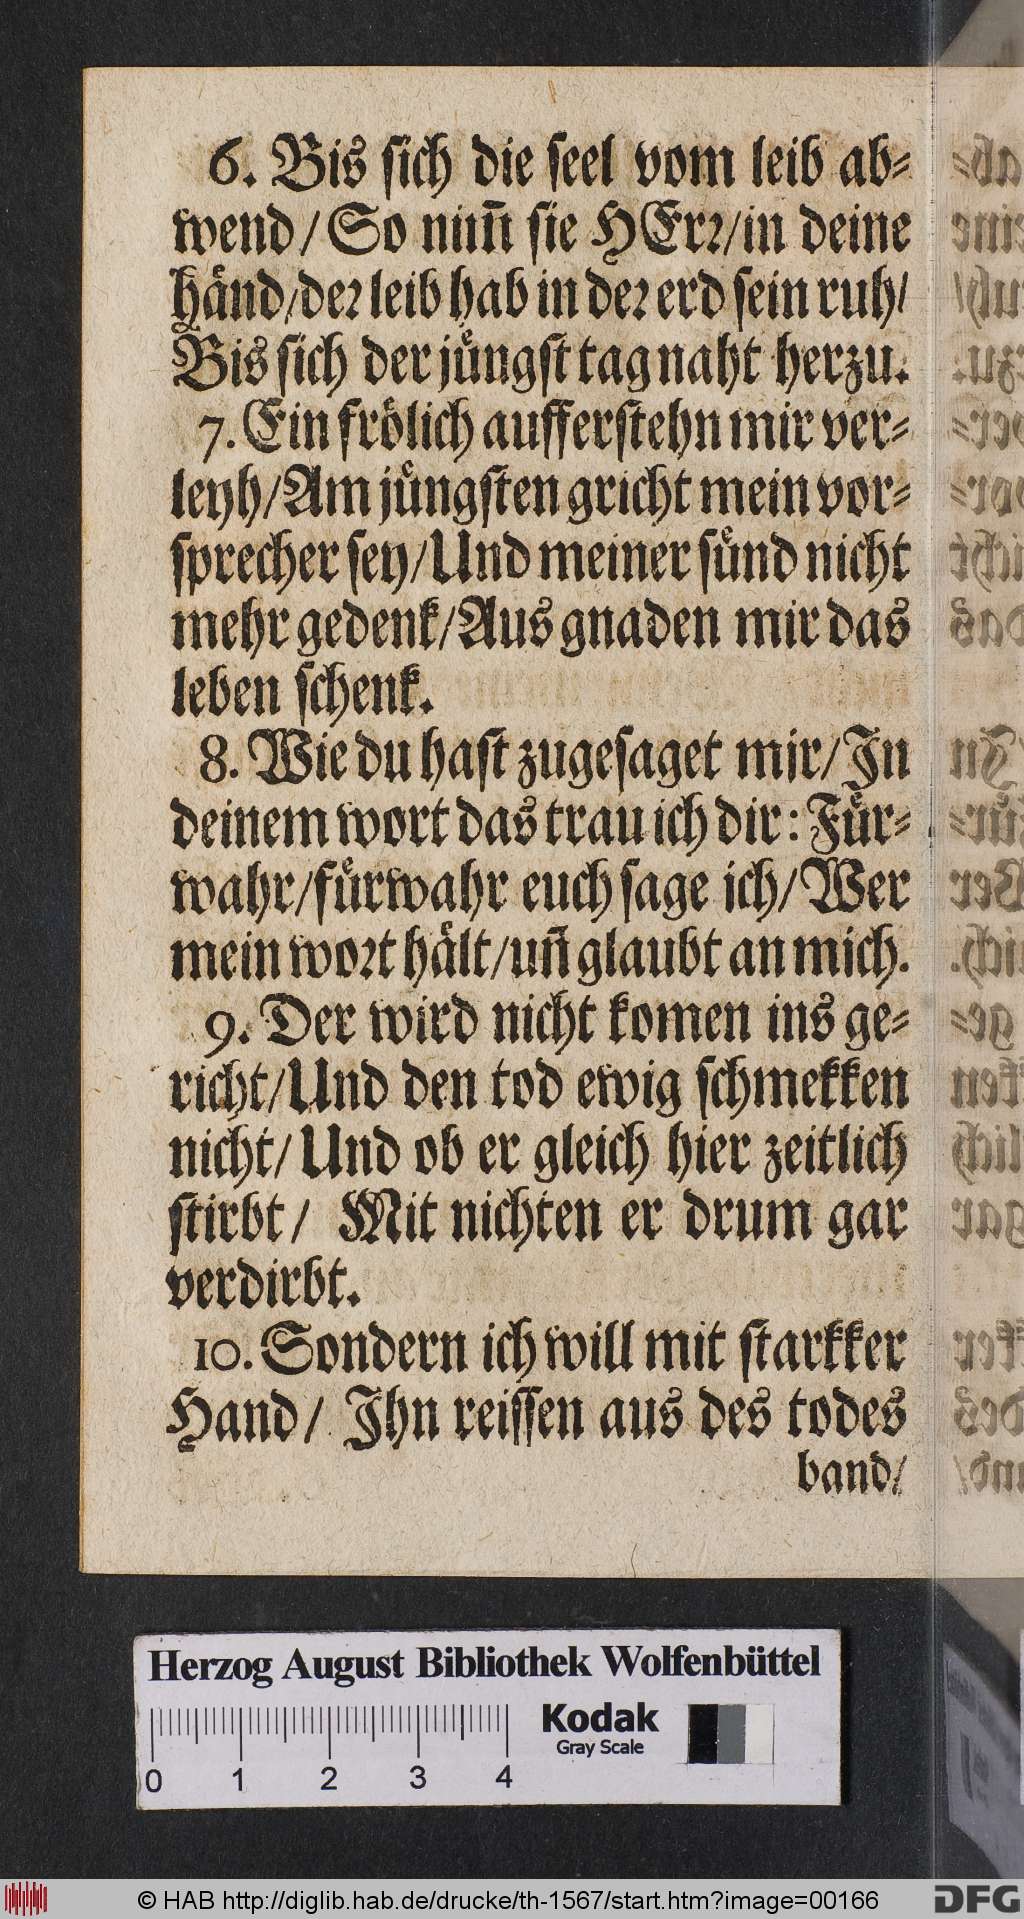 6. Bis sich die seel vom leib ab-
wend/ So nim̃ sie HErr/in deine
hånd/der leib hab in der erd sein ruh/
Bis sich der jůngst tag naht herzu.
7. Ein frölich aufferstehn mir ver-
leyh/Am jůngsten gricht mein vor-
sprecher sey/Und meiner sůnd nicht
mehr gedenk/Aus gnaden mir das
leben schenk.
8. Wie du hast zugesaget mir/ In
deinem wort das trau ich dir: Fůr-
wahr/fůrwahr euch sage ich/ Wer
mein wort hält/uñ glaubt an mich.
9. Der wird nicht komen ins ge-
richt/Und den tod ewig schmekken
nicht/ Und ob er gleich hier zeitlich
stirbt/ Mit nichten er drum gar
verdirbt.
10. Sondern ich will mit starkker
Hand/ Ihn reissen aus des todes
band/
Herzog August Bibliothek Wolfenbüttel
Kodak
Gray Scale
0 1 2 3 4
© HAB http://diglib.hab.de/drucke/th-1567/start.htm?image=00166
DFG